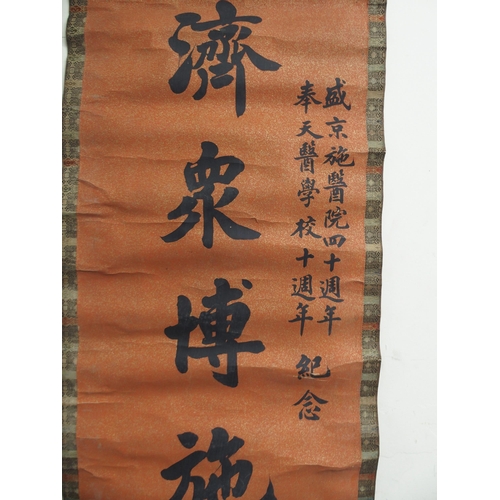 盛京施醫院四十週年
奉天醫學校十週年
紀念
濟衆博施